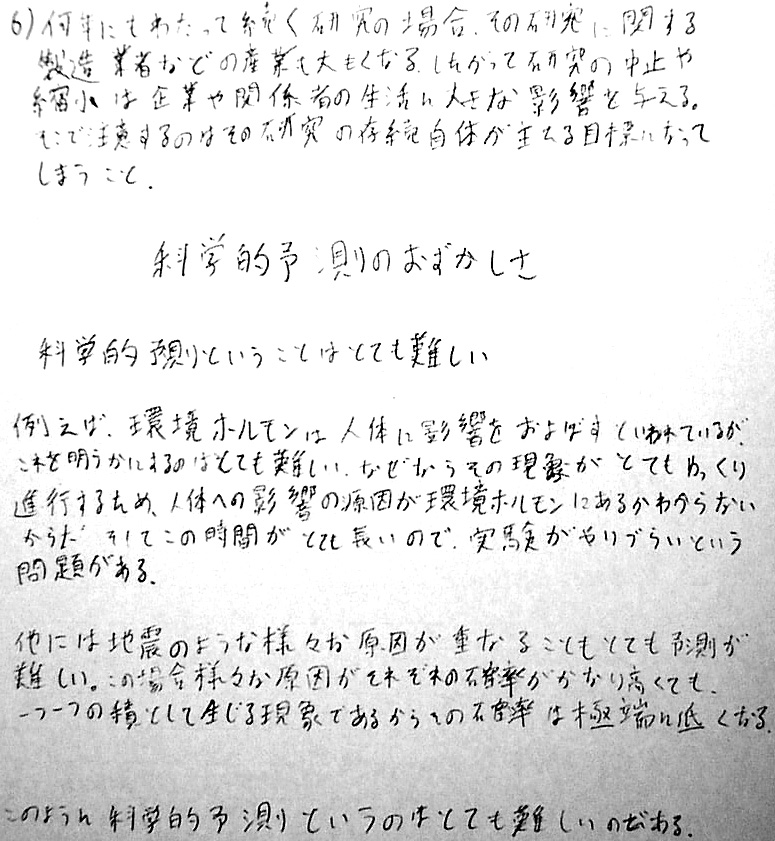 6) 何年にもわたって続く研究の場合、その研究に関する
製造業者などの産業も大きくなる。したがって研究の中止や
縮小は企業や関係者の生活に大きな影響を与える。
そこで注意するのはその研究の存続自体が主たる目標になって
しまうこと。
科学的予測のむずかしさ
科学的予測ということはとても難しい
例えば、環境ホルモンは人体に影響をおよぼすといわれているが、
これを明らかにするのはとても難しい、なぜならその現象がとてもゆっくり
進行するため、人体への影響の原因が環境ホルモンにあるかわからない
からだ そしてこの時間がとても長いので、実験がやりづらいという
問題がある。
他には地震のような様々な原因が重なることもとても予測が
難しい。この場合様々な原因がそれぞれの確率がかなり高くても、
一つ一つの積として生じる現象であるからその確率は極端に低くなる。
このように科学的予測というのはとても難しいのである。